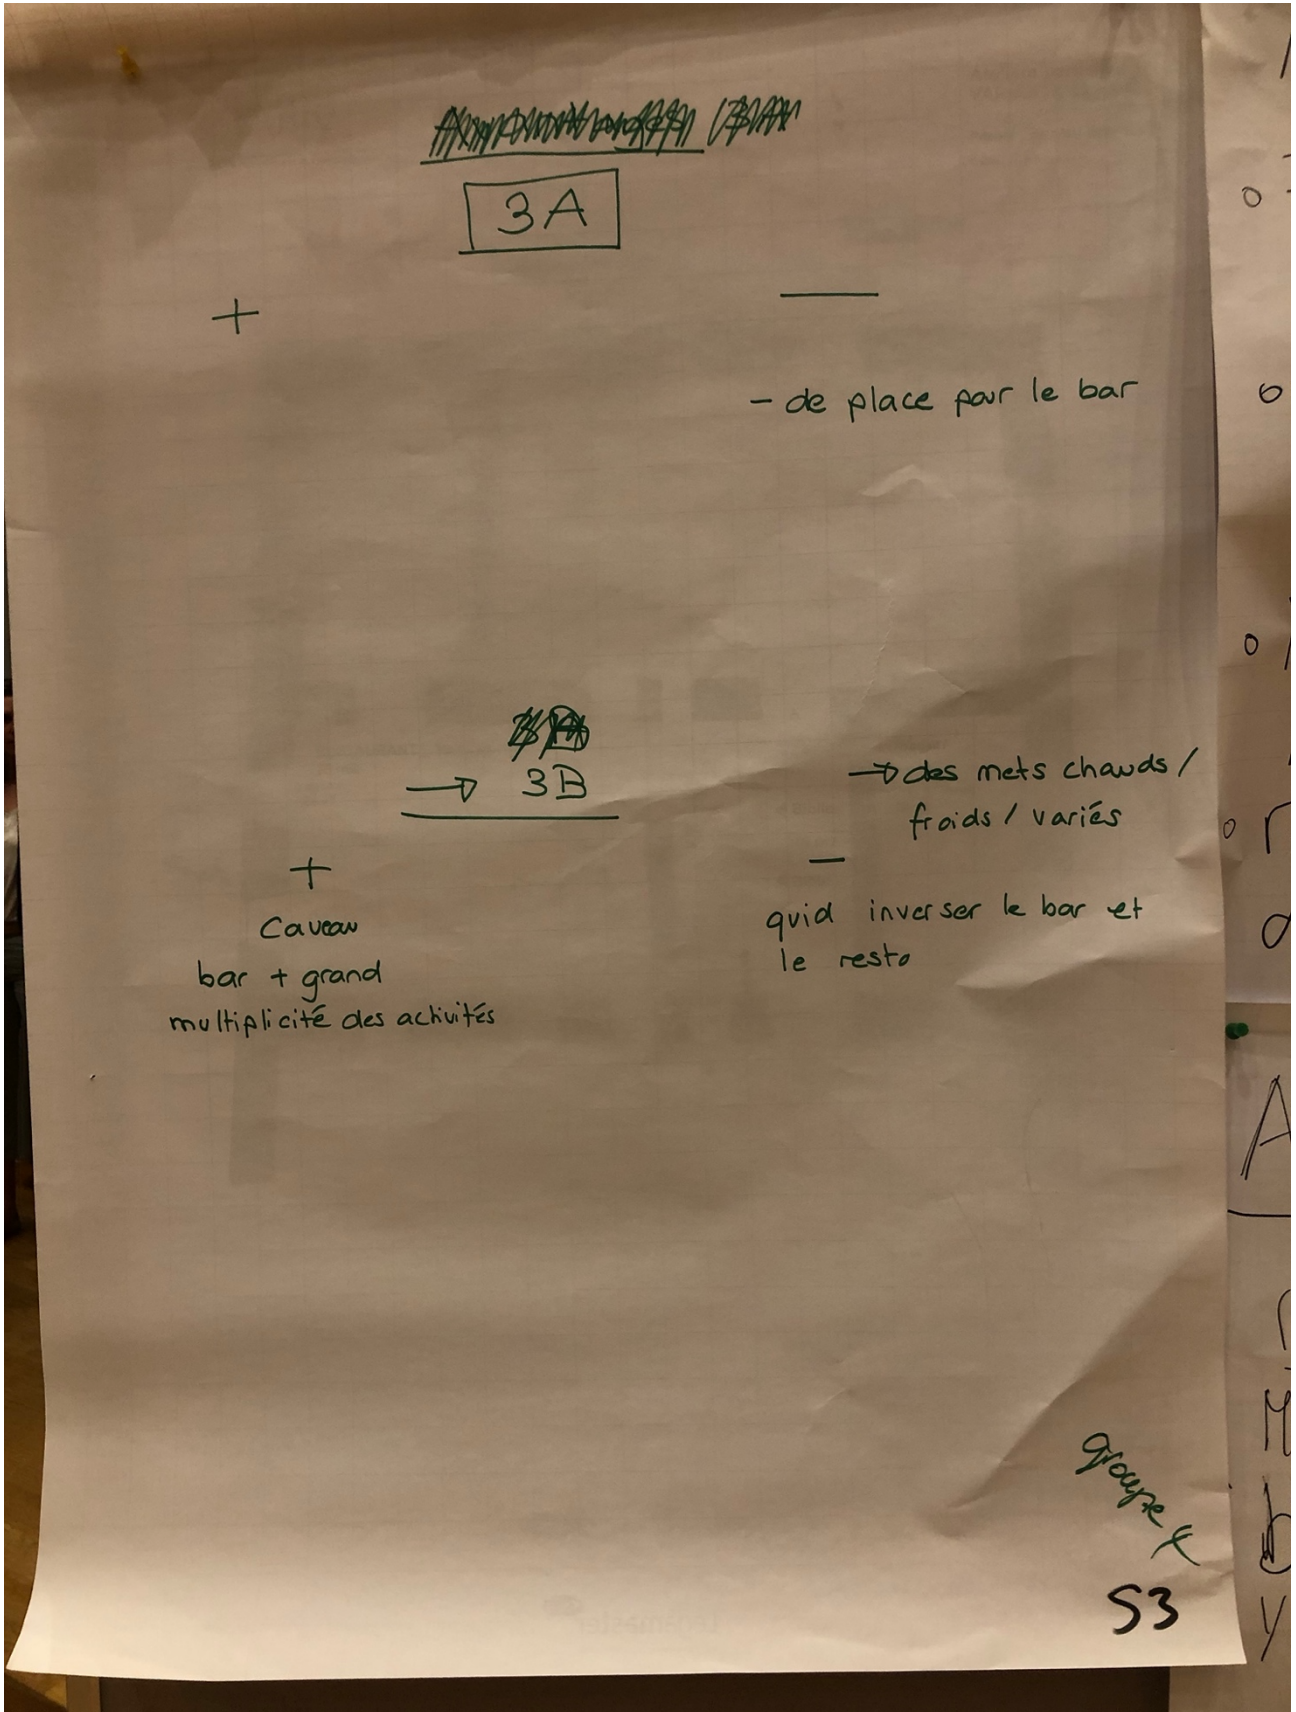 3A
+
—
- de place pour le bar
→ 3B
→ des mets chauds /
froids / variés
+
—
Caveau
bar + grand
multiplicité des activités
quid inverser le bar et
le resto
groupe 4
S3